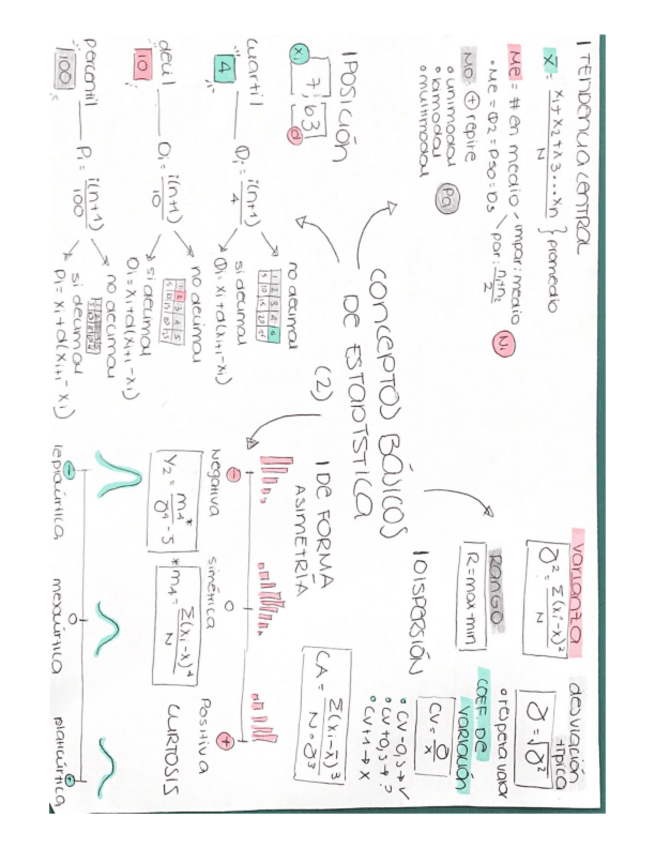 CONCEPTOS BÁSICOS
DE ESTADÍSTICA
(2)
| TENDENCIA CENTRAL
X̄ = x1+x2+x3...xn / N } promedio
Me = # en medio
impar: medio
par: n1+n2 / 2
Ni
• Me = Q2 = P50 = D5
Mo: + repite
• unimodal
• bimodal
• multimodal
| POSICIÓN
7,63
xi
d
cuartil
4
Qi = i(n+1) / 4
no decimal
1 2 3 4 5
5 10 15 20 25
si decimal
Qi = xi+d(xi+1 - xi)
decil
10
Di = i(n+1) / 10
no decimal
1 2 3 4 5
si decimal
Di = xi+d(xi+1 - xi)
percentil
100
Pi = i(n+1) / 100
no decimal
si decimal
Pi = xi+d(xi+1 - xi)
| DISPERSIÓN
RANGO
R = max-min
varianza
∂² = Σ(xi-x̄)² / N
desviación
típica
∂ = √∂²
• respeta valor
COEF DE
VARIACIÓN
CV = ∂ / x̄
• CV -0,5 → ✓
• CV +0,5 → ?
• CV +1 → X
| DE FORMA
ASIMETRÍA
CA = Σ(xi-x̄)³ / N·∂³
-
0
+
Negativa
simétrica
Positiva
CURTOSIS
*m4 = Σ(xi-x̄)⁴ / N
-
0
+
leptocúrtica
mesocúrtica
platicúrtica